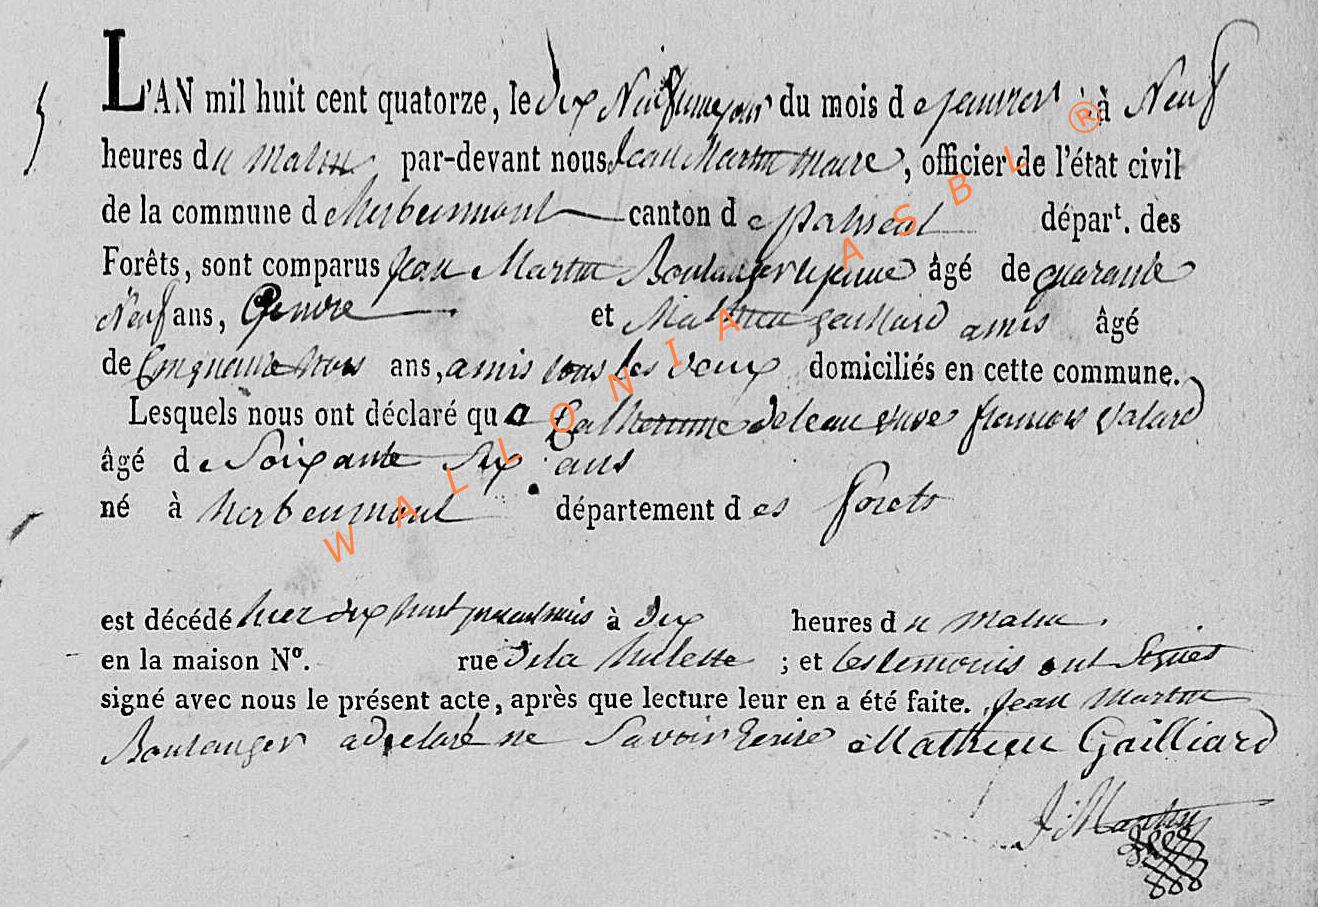 L'AN mil huit cent quatorze, le dix Neufieme jour du mois de janvier à Neuf
heures du matin par-devant nous Jean Martin maire, officier de l'état civil
de la commune d herbeumont canton de paliseul départ. des
Forêts, sont comparus Jean Martin Boulanger le jeune âgé de quarante
Neuf ans, Gendre et Mathieu gaillard amis âgé
de Cinquante trois ans, amis tous les deux domiciliés en cette commune.
Lesquels nous ont déclaré qu Catherinne deleau veuve francois
âgé de Soixante Six ans
né à herbeumont département des forets
est décédé hier dix huit present mois à dix heures du matin
en la maison N°. rue dela ; et les temoins ont Signés
signé avec nous le présent acte, après que lecture leur en a été faite. Jean Martin
Boulanger a declaré ne Savoir Ecrire Mathieu Gailliard
J. Martin
WALLONIA ASBL ®